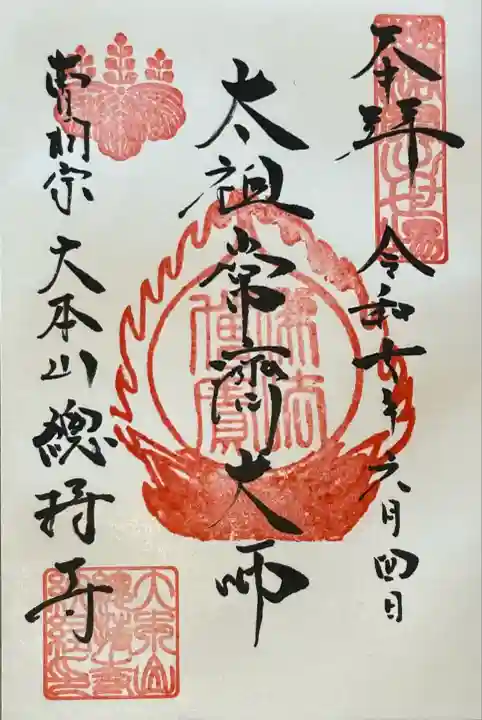 奉拝 令和七年六月四日
太祖常濟大師
曹洞宗 大本山總持寺
佛法僧寳